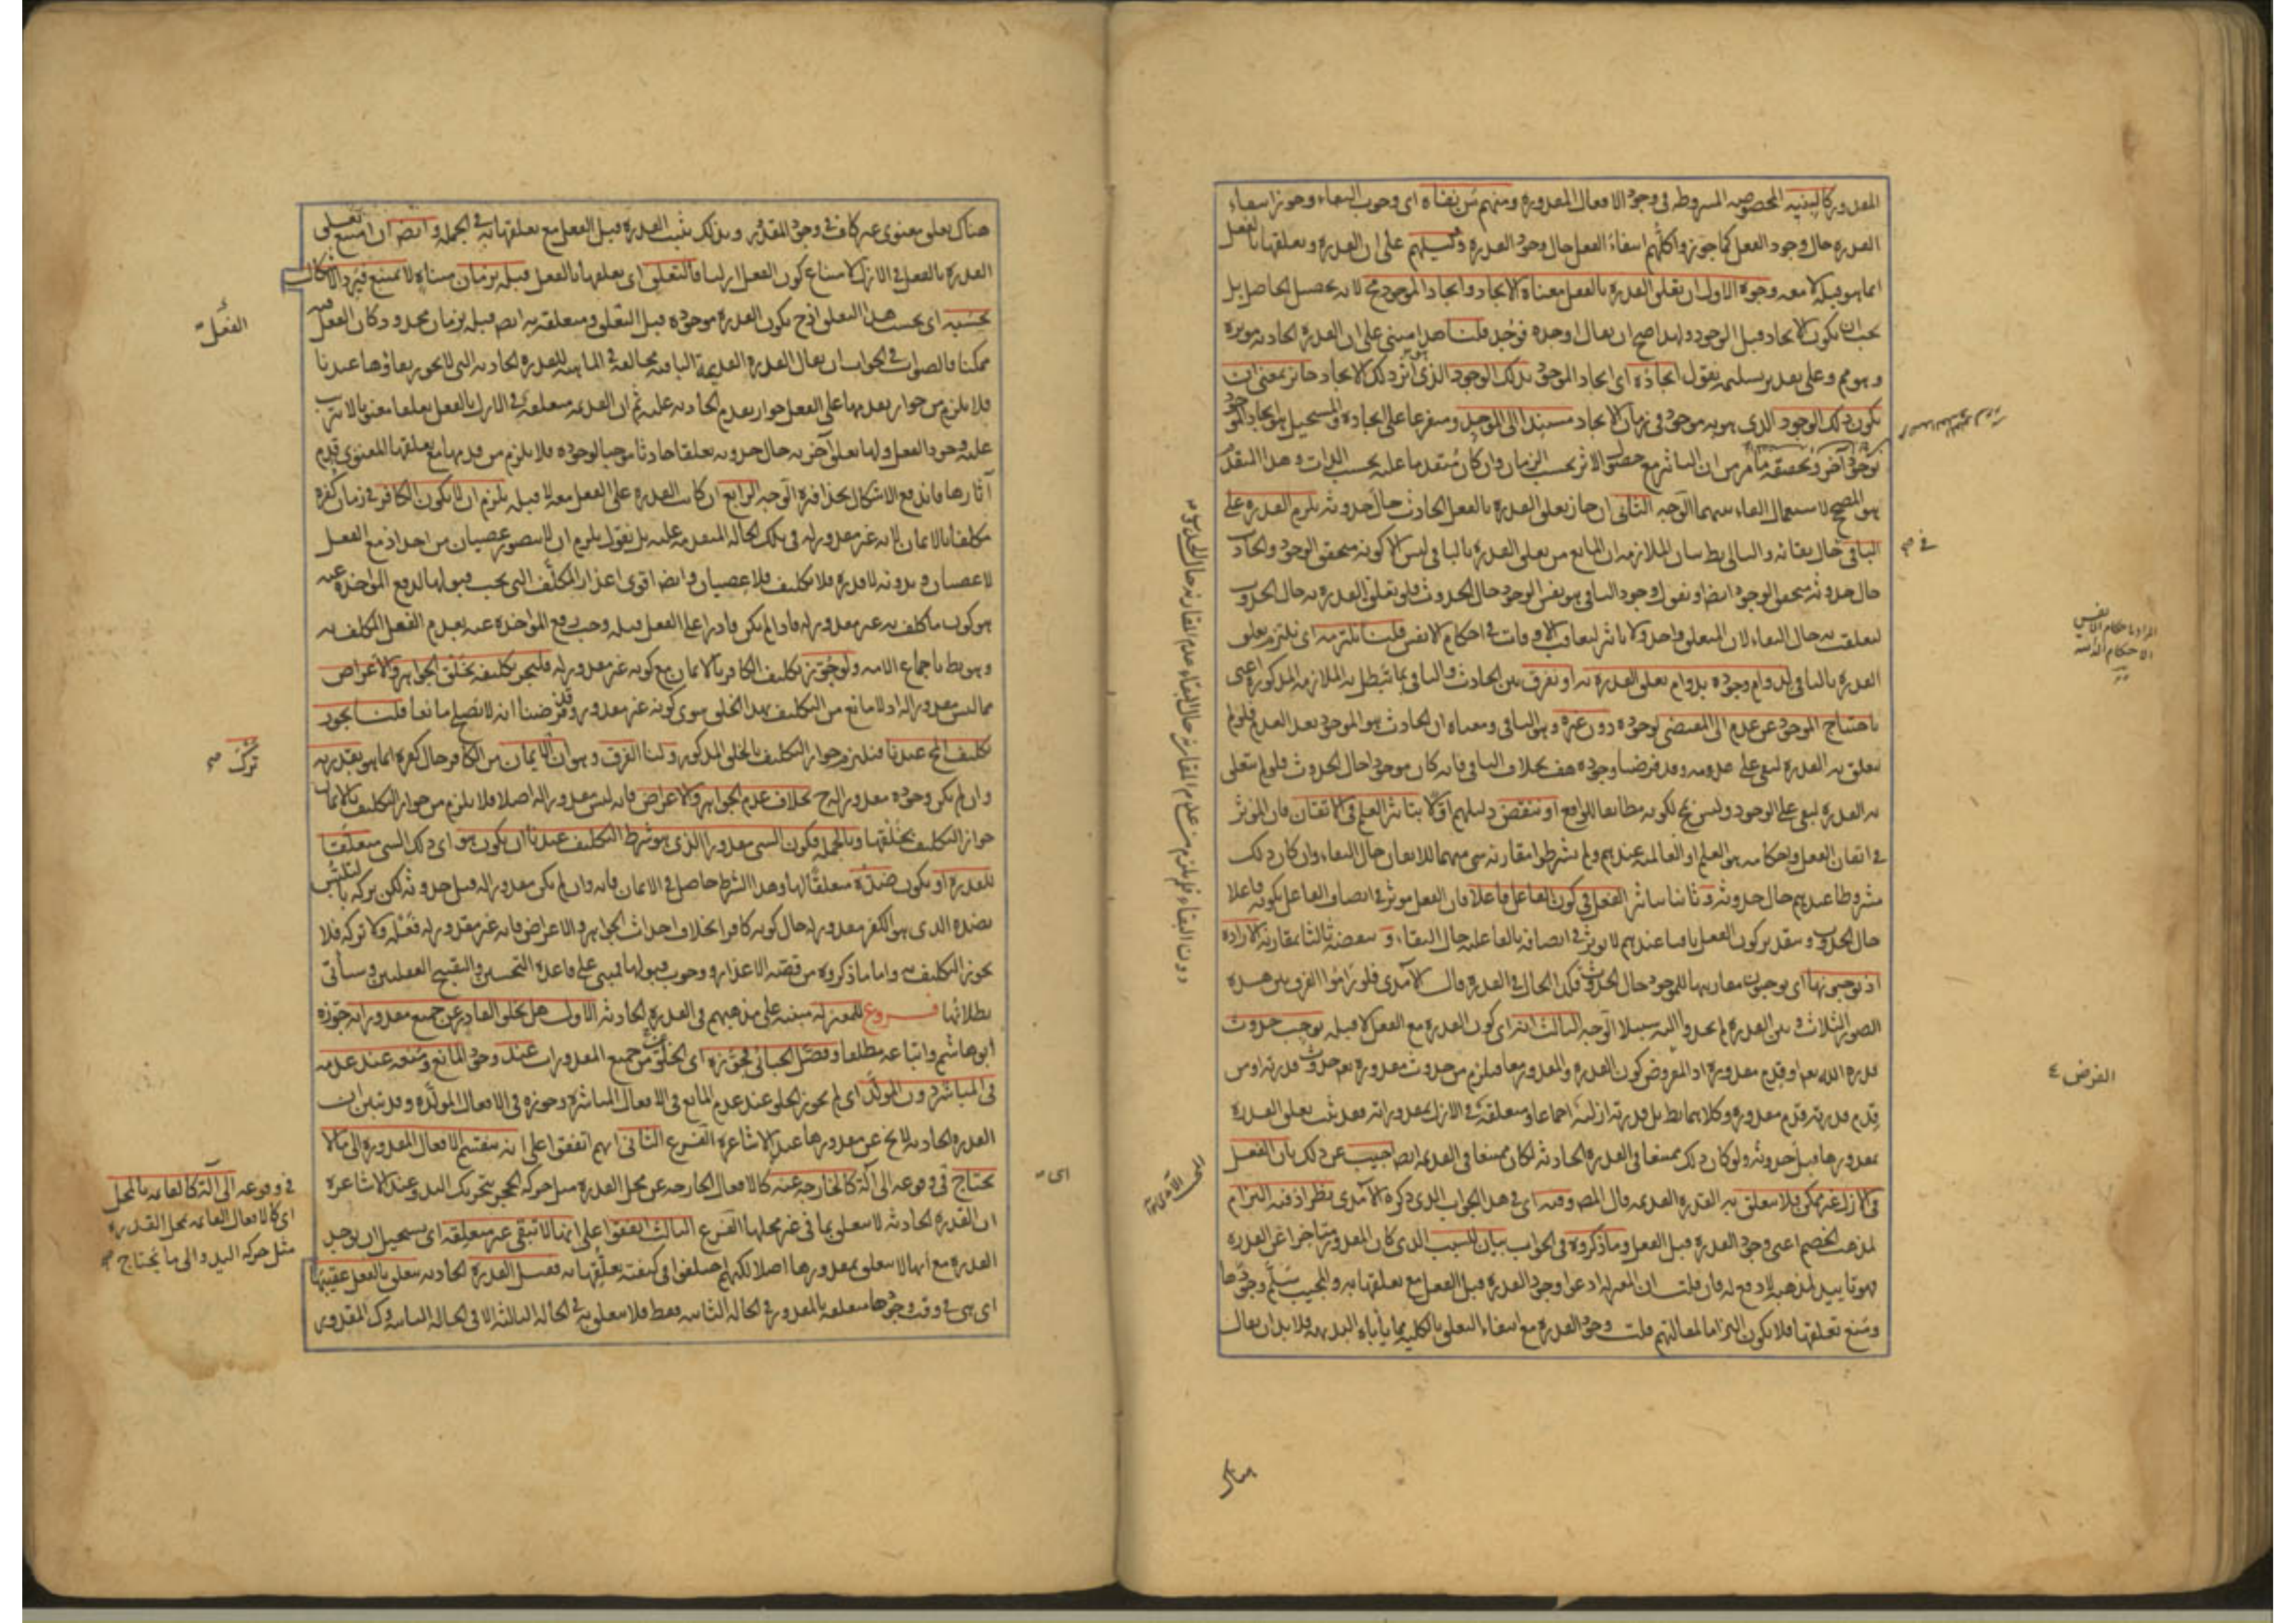 المقدور كالبنية المخصوصة المشروطة في وجود الافعال المقدورة ومنهم من نفاه اى وجوب البقاء وجوز انتفاء
القدرة حال وجود الفعل كما جوزوا كلهم انتفاء الفعل حال وجود القدرة دليلهم على ان القدرة وتعلقها بالفعل
انما هو قبله لا معه وجوه الاول ان تعلق القدرة بالفعل معناه الايجاد وايجاد الموجود مح لانه تحصيل الحاصل بل
يجب ان يكون الايجاد قبل الوجود ولهذا صح ان يقال اوجده فوجد قلنا هذا مبنى على ان القدرة الحادثة مؤثرة
وهو مم وعلى تقدير تسليمه نقول ايجاده اى ايجاد الموجود بذلك الوجود الذى هو اثر ذلك الايجاد جائز بمعنى ان
يكون ذلك الوجود الذى هو به موجود في زمان الايجاد مستندا الى الموجد ومتفرعا على ايجاده والمستحيل هو ايجاد الموجود
بوجود آخر وتحقيقه ما مر من ان التاثير مع حصول الاثر بحسب الزمان وان كان متقدما عليه بحسب الذات وهذا التقدم
هو المصحح لاستعمال الفاء بينهما الوجه الثاني ان جاز تعلق القدرة بالفعل الحادث حال حدوثه يلزم القدرة على
الباقي حال بقائه والتالى بط بيان الملازمة ان المانع من تعلق القدرة بالباقي ليس الا كونه متحقق الوجود والحادث
حال حدوثه متحقق الوجود ايضا او نقول وجود الباقي هو نفس الوجود حال الحدوث فلو تعلق القدرة به حال الحدوث
لتعلقت به حال البقاء لان المتعلق واحد ولا تاثير لتعاقب الاوقات في احكام الانفس قلنا نلتزمه اى نلتزم تعلق
القدرة بالباقي لدوام وجوده بدوام تعلق القدرة به او نفرق بين الحادث والباقي بما يبطل به الملازمة المذكورة اعنى
باحتياج الموجود عن عدم الى المقتضى لوجوده دون غيره وهو الباقي ومعناه ان الحادث هو الموجود بعد العدم فلو لم
تتعلق به القدرة لبقى على عدمه وقد فرضنا وجوده هف بخلاف الباقي فانه كان موجودا حال الحدوث فلو لم تتعلق
به القدرة لبقى على الوجود وليس بمح لكونه مطابقا للواقع او ننقض دليلهم اولا بتاثير العلم في الاتقان فان المؤثر
في اتقان الفعل واحكامه هو العلم او العالمية عندهم ولم يشترطوا مقارنة شى منهما للاتقان حال البقاء وان كان ذلك
مشروطا عندهم حال حدوثه وثانيا بتاثير الفعل في كون الفاعل فاعلا فان الفعل مؤثر في اتصاف الفاعل بكونه فاعلا
حال الحدوث وبتقدير كون الفعل باقيا عندهم لا يؤثر في اتصافه بالفاعلية حال البقاء و ننقضه ثالثا بمقارنة الارادة
اذ يوجبونها اى يوجبون مقارنتها للموجود حال الحدوث فكذا الحال في القدرة قال الآمدى فلو راموا الفرق بين هذه
الصور الثلاث وبين القدرة لم يجدوا اليه سبيلا الوجه الثالث انه اى كون القدرة مع الفعل لا قبله يوجب حدوث
قدرة الله تعا او قدم مقدوره اذ المفروض كون القدرة والمقدور معا فيلزم من حدوث مقدوره تعه حدوث قدرته او من
قدم قدرته قدم مقدوره وكلاهما بط بل قدرته ازلية اجماعا ومتعلقة في الازل بمقدوراته فقد ثبت تعلق القدرة
بمقدورها قبل حدوثه ولو كان ذلك ممتنعا في القدرة الحادثة لكان ممتنعا في القديمة ايضا اجيب عن ذلك بان الفعل
في الازل غير ممكن فلا تتعلق به القدرة القديمة قال المص وفيه اى في هذا الجواب الذى ذكره الآمدى نظر اذ فيه التزام
لمذهب الخصم اعنى وجود القدرة قبل الفعل وما ذكروه في الجواب بيان للسبب الذى كان المقدور متاخرا عن القدرة
فهو تاييد لمذهبه لا دفع له فان قلت ان المعتزلة ادعوا وجود القدرة قبل الفعل مع تعلقها به والمجيب سلم وجودها
ومنع تعلقها فلا يكون التزاما لمقالتهم قلت وجود القدرة مع انتفاء التعلق بالكلية مما يأباه البديهة فلا بد ان يقال
في صح
المراد باحكام الانفس
الاحكام الذاتية
الفرض ٤
هناك
هناك تعلق معنوى غير كاف في وجود المقدور وبذلك يثبت القدرة قبل الفعل مع تعلقها به في الجملة وايضا ان امتنع تعلق
القدرة بالفعل في الازل لامتناع كون الفعل ازليا فالتعلق اى تعلقها بالفعل قبله بزمان متناه لا يمتنع فيرد الاشكال
بحسبه اى بحسب هذا التعلق اذ ح يكون القدرة موجودة قبل التعلق ومتعلقة به ايضا قبله بزمان محدود كان الفعل فيه
ممكنا فالصواب في الجواب ان يقال القدرة القديمة الباقية مخالفة في الماهية للقدرة الحادثة التي لا يجوز بقاؤها عندنا
فلا يلزم من جواز تقدمها على الفعل جواز تقدم الحادثة عليه ثم ان القديمة متعلقة في الازل بالفعل تعلقا معنويا لا يترتب
عليه وجود الفعل ولها تعلق آخر به حال حدوثه تعلقا حادثا موجبا لوجوده فلا يلزم من قدمها مع تعلقها المعنوى قدم
آثارها فاندفع الاشكال بحذافيره الوجه الرابع ان كانت القدرة على الفعل معه لا قبله يلزم ان لا يكون الكافر في زمان كفره
مكلفا بالايمان لانه غير مقدور له في تلك الحالة المتقدمة عليه بل نقول يلزم ان لا يتصور عصيان من احد اذ مع الفعل
لا عصيان وبدونه لا قدرة فلا تكليف فلا عصيان وايضا اقوى اعذار المكلف التي يجب قبولها لدفع المؤاخذة عنه
هو كون ما كلف به غير مقدور له فاذا لم يكن قادرا على الفعل قبله وجب رفع المؤاخذة عنه بعدم الفعل المكلف به
وهو بط باجماع الامة ولو جوز تكليف الكافر بالايمان مع كونه غير مقدور له فليجز تكليفه بخلق الجواهر والاعراض
مما ليس مقدورا له اذ لا مانع من التكليف بهذا الخلق سوى كونه غير مقدور وقد فرضنا انه لا يصلح مانعا قلنا يجوز
تكليف المح عندنا فنلتزم جواز التكليف بالخلق المذكور ولنا الفرق وهو ان الايمان من الكافر حال كفره انما هو بقدرته
وان لم يكن وجوده مقدورا له ح بخلاف عدم الجواهر والاعراض فانه ليس مقدورا له اصلا فلا يلزم من جواز التكليف بالايمان
جواز التكليف بخلقها وبالجملة فكون الشى مقدورا الذى هو شرط التكليف عندنا ان يكون هو اى ذلك الشى متعلقا
للقدرة او يكون ضده متعلقا لها وهذا الشرط حاصل في الايمان فانه وان لم يكن مقدورا له قبل حدوثه لكن تركه بالتلبس
بضده الذى هو الكفر مقدور له حال كونه كافرا بخلاف احداث الجواهر والاعراض فانه غير مقدور له فعله ولا تركه فلا
يجوز التكليف به واما ما ذكروه من قضية الاعذار ووجوب قبولها فمبنى على قاعدة التحسين والتقبيح العقليين وسيأتى
بطلانها فروع للمعتزلة مبنية على مذهبهم في القدرة الحادثة الاول هل يخلو القادر عن جميع مقدوراته جوزه
ابو هاشم واتباعه مطلقا وفصل الجبائى فجوزه اى الخلو عن جميع المقدورات عند وجود المانع ومنعه عند عدمه
في المباشر دون المولد اى لم يجوز الخلو عند عدم المانع في الافعال المباشرة وجوزه في الافعال المولدة وقد تبين ان
القدرة الحادثة لا يخ عن مقدورها عند الاشاعرة الفرع الثاني انهم اتفقوا على انه ينقسم الافعال المقدورة الى ما لا
يحتاج في وقوعه الى آلة كالخارجة عنه كالافعال الخارجة عن محل القدرة مثل حركة الحجر بتحريك اليد وعند الاشاعرة
ان القدرة الحادثة لا تتعلق بما في غير محلها الفرع الثالث اتفقوا على انها لا تبقى غير متعلقة اى يستحيل ان يوجد
القدرة مع انها لا تتعلق بمقدورها اصلا لكنهم اختلفوا في كيفية تعلقها به فقيل القدرة الحادثة تتعلق بالفعل عقيبها
اى هى في وقت وجودها متعلقة بالمقدور في الحالة الثانية فقط فلا تتعلق به في الحالة الثالثة الا في الحالة الثانية وك المقدور
الفعل
ترك صح
اى
في وقوعه الى آلة كالقائمة بالمحل
اى كالافعال القائمة بمحل القدرة
مثل حركة اليد والى ما يحتاج صح